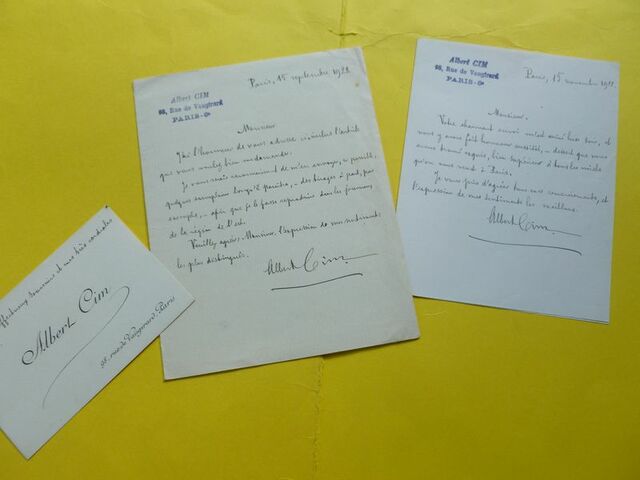 Albert CIM
98, Rue de Vaugirard
PARIS-6e
Paris, 15 septembre 1922
Monsieur
J'ai l'honneur de vous adresser l'article
que vous voulez bien me demander.
Je vous serais reconnaissant de m'en envoyer, si possible,
quelques exemplaires lorsqu'il paraîtra, – des tirages à part, par
exemple, – afin que je le fasse reproduire dans les journaux
de la région de l'Est.
Veuillez agréer, Monsieur, l'expression de mes sentiments
les plus distingués.
Albert Cim
Albert CIM
98, Rue de Vaugirard
PARIS-6e
Paris, 15 novembre 19
Monsieur,
Votre envoi m'est arrivé hier soir, et
nous y avons fait honneur aussitôt,
bien supérieur à tous les
qu'on nous vend à Paris.
Je vous prie d'agréer tous nos remerciements, et
l'expression de mes sentiments les meilleurs.
Albert Cim
souvenirs et mes très cordiales
Albert Cim
98, rue de Vaugirard, Paris